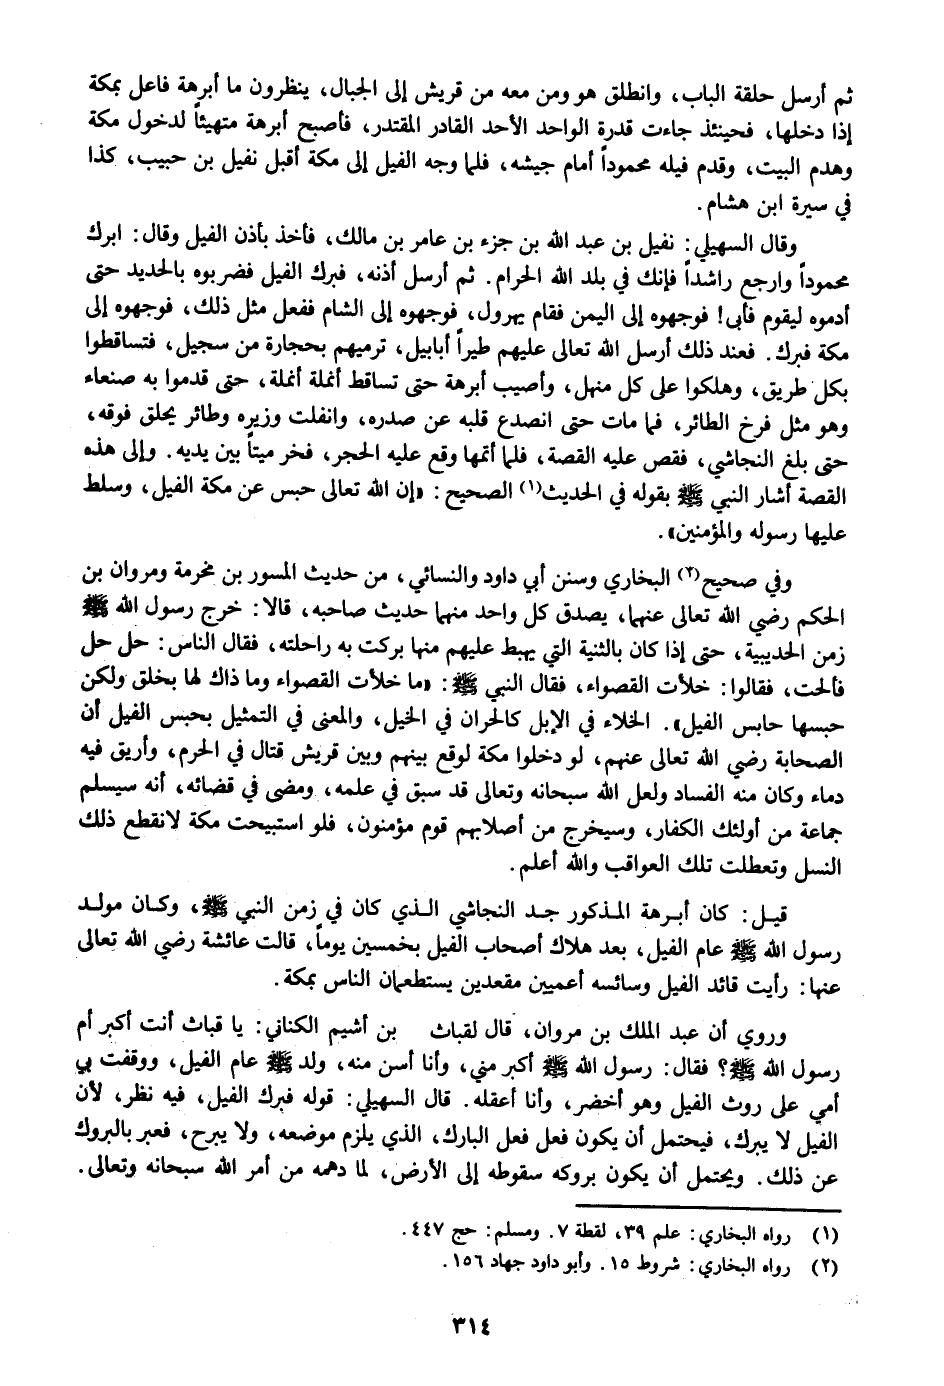 ثم أرسل حلقة الباب، وانطلق هو ومن معه من قريش إلى الجبال، ينظرون ما أبرهة فاعل بمكة
إذا دخلها، فحينئذ جاءت قدرة الواحد الأحد القادر المقتدر، فأصبح أبرهة متهيئاً لدخول مكة
وهدم البيت، وقدم فيله محموداً أمام جيشه، فلما وجه الفيل إلى مكة أقبل نفيل بن حبيب، كذا
في سيرة ابن هشام.
وقال السهيلي: نفيل بن عبد الله بن جزء بن عامر بن مالك، فأخذ بأذن الفيل وقال: ابرك
محموداً وارجع راشداً فإنك في بلد الله الحرام. ثم أرسل أذنه، فبرك الفيل فضربوه بالحديد حتى
أدموه ليقوم فأبى! فوجهوه إلى اليمن فقام يهرول، فوجهوه إلى الشام ففعل مثل ذلك، فوجهوه إلى
مكة فبرك. فعند ذلك أرسل الله تعالى عليهم طيراً أبابيل، ترميهم بحجارة من سجيل، فتساقطوا
بكل طريق، وهلكوا على كل منهل، وأصيب أبرهة حتى تساقط أنملة أنملة، حتى قدموا به صنعاء
وهو مثل فرخ الطائر، فما مات حتى انصدع قلبه عن صدره، وانفلت وزيره وطائر يحلق فوقه،
حتى بلغ النجاشي، فقص عليه القصة، فلما أتمها وقع عليه الحجر، فخر ميتاً بين يديه. وإلى هذه
القصة أشار النبي ﷺ بقوله في الحديث(١) الصحيح: «إن الله تعالى حبس عن مكة الفيل، وسلط
عليها رسوله والمؤمنين».
وفي صحيح(٢) البخاري وسنن أبي داود والنسائي، من حديث المسور بن مخرمة ومروان بن
الحكم رضي الله تعالى عنهما، يصدق كل واحد منهما حديث صاحبه، قالا: خرج رسول الله ﷺ
زمن الحديبية، حتى إذا كان بالثنية التي يهبط عليهم منها بركت به راحلته، فقال الناس: حل حل
فألحت، فقالوا: خلأت القصواء، فقال النبي ﷺ: «ما خلأت القصواء وما ذاك لها بخلق ولكن
حبسها حابس الفيل». الخلاء في الإبل كالحران في الخيل، والمعنى في التمثيل بحبس الفيل أن
الصحابة رضي الله تعالى عنهم، لو دخلوا مكة لوقع بينهم وبين قريش قتال في الحرم، وأريق فيه
دماء وكان منه الفساد ولعل الله سبحانه وتعالى قد سبق في علمه، ومضى في قضائه، أنه سيسلم
جماعة من أولئك الكفار، وسيخرج من أصلابهم قوم مؤمنون، فلو استبيحت مكة لانقطع ذلك
النسل وتعطلت تلك العواقب والله أعلم.
قيل: كان أبرهة المذكور جد النجاشي الذي كان في زمن النبي ﷺ، وكان مولد
رسول الله ﷺ عام الفيل، بعد هلاك أصحاب الفيل بخمسين يوماً، قالت عائشة رضي الله تعالى
عنها: رأيت قائد الفيل وسائسه أعميين مقعدين يستطعمان الناس بمكة.
وروي أن عبد الملك بن مروان، قال لقباث بن أشيم الكناني: يا قباث أنت أكبر أم
رسول الله ﷺ؟ فقال: رسول الله ﷺ أكبر مني، وأنا أسن منه، ولد ﷺ عام الفيل، ووقفت بي
أمي على روث الفيل وهو أخضر، وأنا أعقله. قال السهيلي: قوله فبرك الفيل، فيه نظر، لأن
الفيل لا يبرك، فيحتمل أن يكون فعل فعل البارك، الذي يلزم موضعه، ولا يبرح، فعبر بالبروك
عن ذلك. ويحتمل أن يكون بروكه سقوطه إلى الأرض، لما دهمه من أمر الله سبحانه وتعالى.
(١) رواه البخاري: علم ٣٩، لقطة ٧. ومسلم: حج ٤٤٧.
(٢) رواه البخاري: شروط ١٥. وأبو داود جهاد ١٥٦.
٣١٤